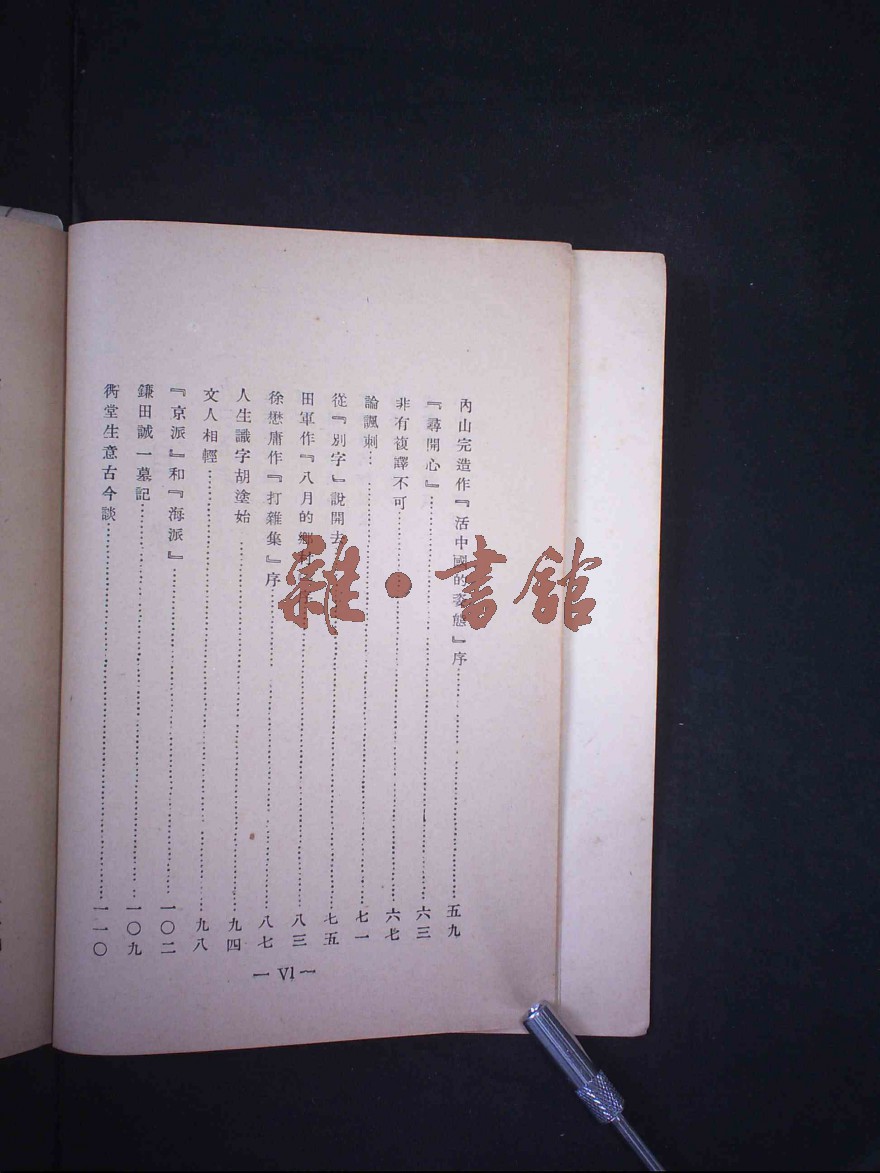 內山完造作『活中國的姿態』序……五九
『尋開心』……六三
非有複譯不可……六七
論諷刺……七一
從『別字』說開去……七五
田軍作『八月的鄉村』序……八三
徐懋庸作『打雜集』序……八七
人生識字胡塗始……九四
文人相輕……九八
『京派』和『海派』……一〇二
鎌田誠一墓記……一〇九
衖堂生意古今談……一一〇
— VI —
雜·書館